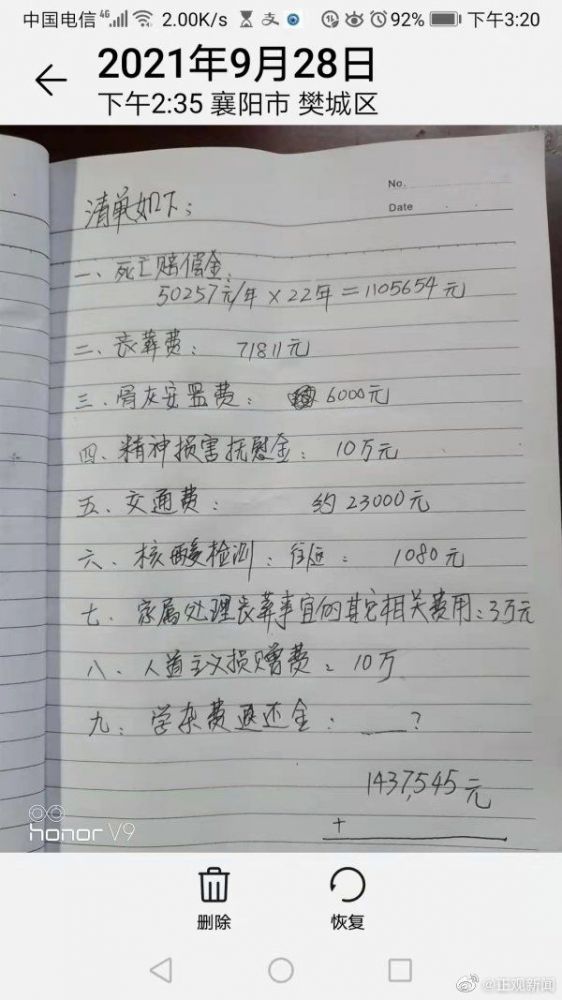 中国电信 4G 2.00K/s 支 92% 下午3:20
2021年9月28日
下午2:35 襄阳市 樊城区
No.
Date
清单如下：
一、死亡赔偿金：
50257元/年 × 22年 = 1105654 元
二、丧葬费： 71811元
三、骨灰安置费： 6000元
四、精神损害抚慰金： 10万元
五、交通费： 约 23000元
六、核酸检测：往返： 1080元
七、家属处理丧葬事宜的其它相关费用：3万元
八、人道主义损赠费：10万
九：学杂费退还金：__？
1437,545元
+
honor V9
删除 恢复
@正观新闻